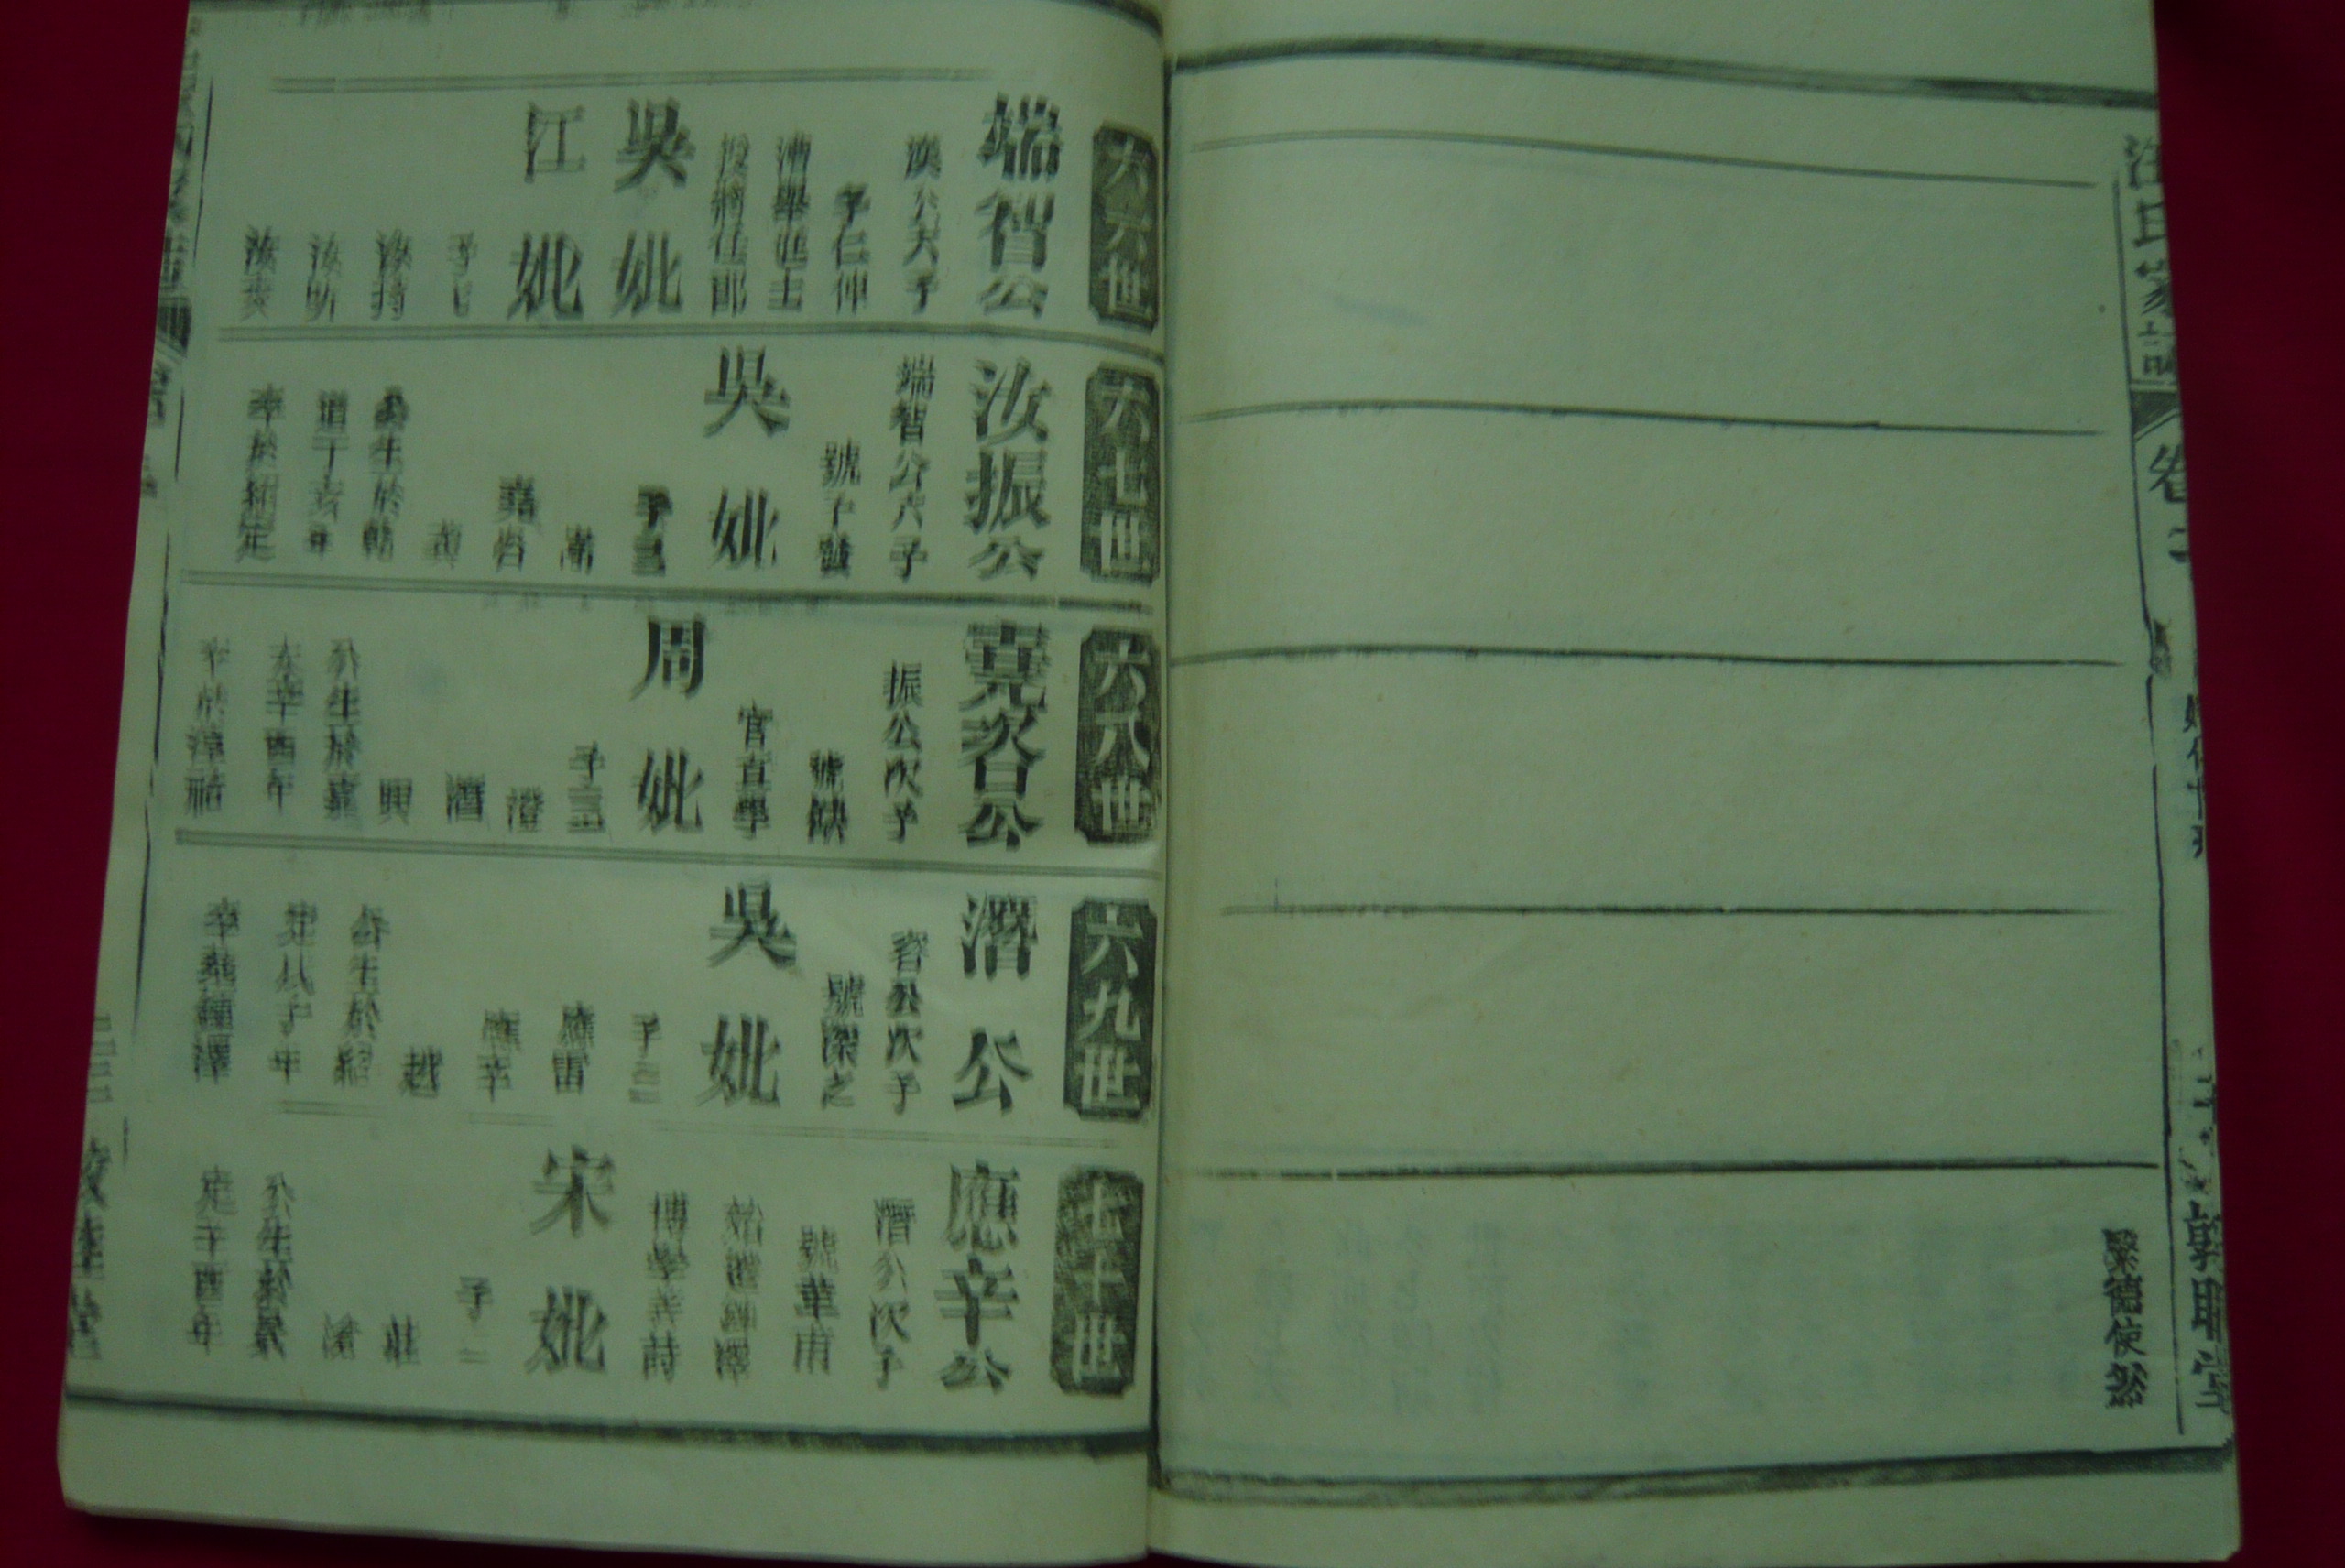 汪氏家譜
卷
敦睦堂
緊德使然
六六世
端智公
漢公六子
字仁仲
漕舉進士
授將仕郎
吳妣
江妣
子七
汝持
汝昕
汝亥
六七世
汝振公
端智公六子
號子發
吳妣
子三
嘉容
公生於乾
道丁亥年
卒於紹定
六八世
嘉容公
振公次子
號缺
官直學
周妣
子三
澄
潛
興
公生於嘉
泰辛酉年
卒於淳祐
六九世
潛公
容公次子
號深之
吳妣
子三
應雷
應辛
越
公生於紹
定戊子年
卒葬鍾澤
七十世
應辛公
潛公次子
號華甫
始遷鍾澤
博學善詩
宋妣
子二
莊
滄
公生於景
定辛酉年
敦睦堂